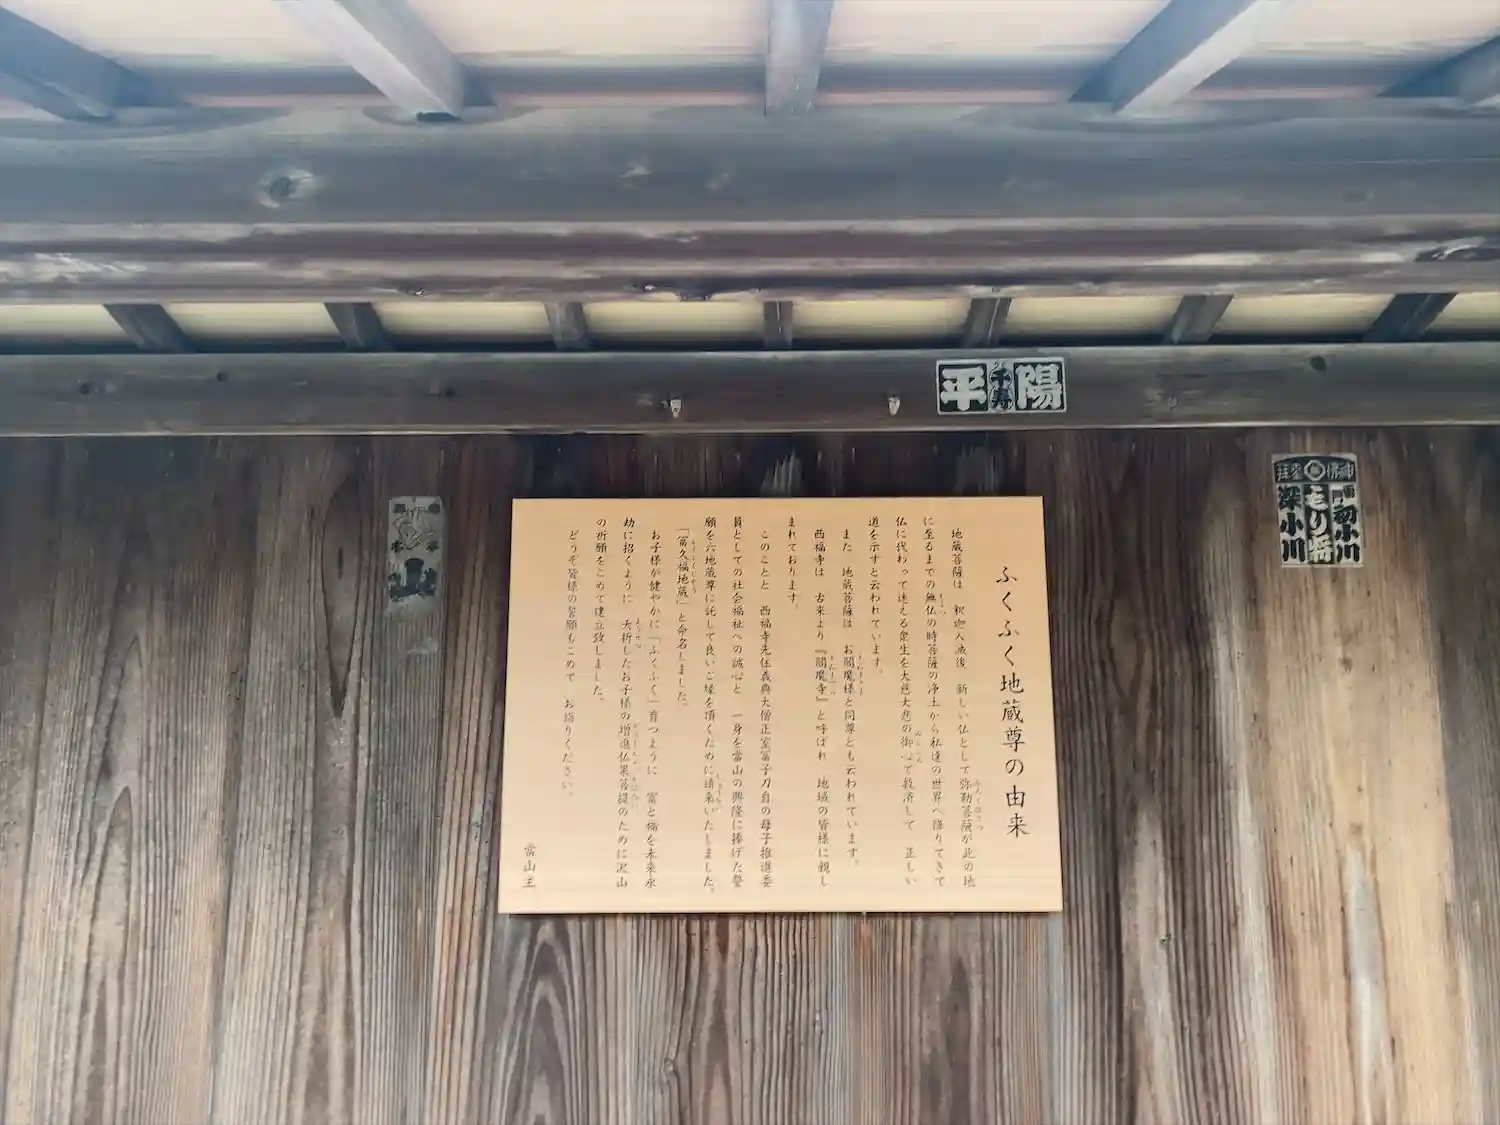 ふくふく地蔵尊の由来
地蔵菩薩は 釈迦入滅後 新しい仏として弥勒菩薩が此の地
に至るまでの無仏の時菩薩の浄土から私達の世界へ降りてきて
仏に代わって迷える衆生を大慈大悲の御心で救済して 正しい
道を示すと云われています。
また 地蔵菩薩は お閻魔様と同尊とも云われています。
西福寺は 古来より『閻魔寺』と呼ばれ 地域の皆様に親し
まれております。
このことと 西福寺先住義典大僧正室冨子刀自の母子推進委
員としての社会福祉への誠心と 一身を當山の興隆に捧げた誓
願を六地蔵尊に託して良いご縁を頂くために請来いたしました。
「冨久福地蔵」と命名しました。
お子様が健やかに「ふくふく」育つように 富と福を未来永
劫に招くように 夭折したお子様の増進仏果菩提のために沢山
の祈願をこめて建立致しました。
どうぞ皆様の誓願もこめて お詣りください。
當山主
平 千寿 陽
初小川
もり将
深小川